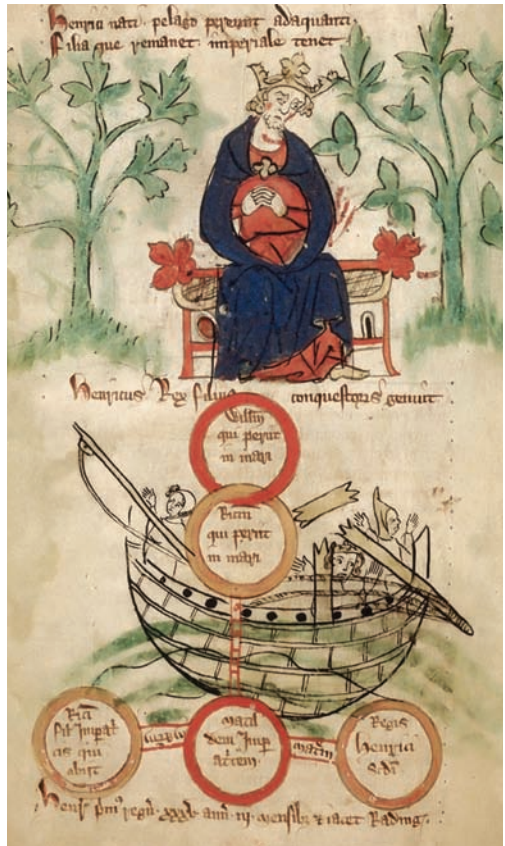 Henrici nati pelago perierunt adaquati.
Filia que remanet imperiale tenet
Henricus Rex filius conquestoris genuit
Willm
qui periit
in mari
Ricm
qui periit
in mari
Rici
fil Impat
cis qui
obiit
matil
dem Imp
atcem
mater
Regis
Henrici
Scdi
Henr pm regn xxxv ann iii mensib et iacet Rading.